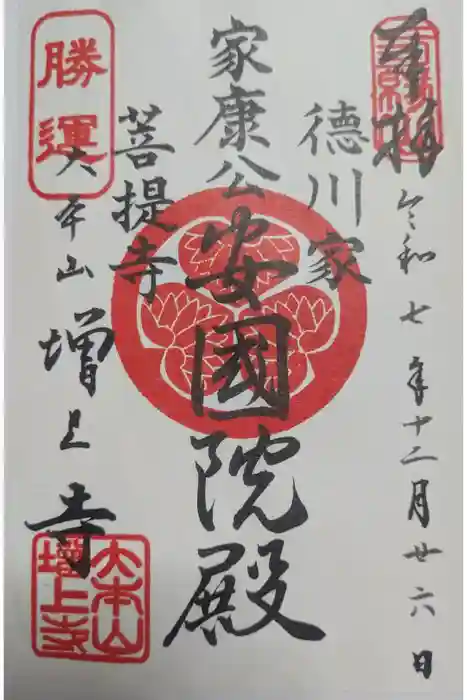 奉拝
令和七年十二月廿六日
徳川家
家康公安國院殿
菩提寺
勝運
大本山増上寺
大本山
增上寺